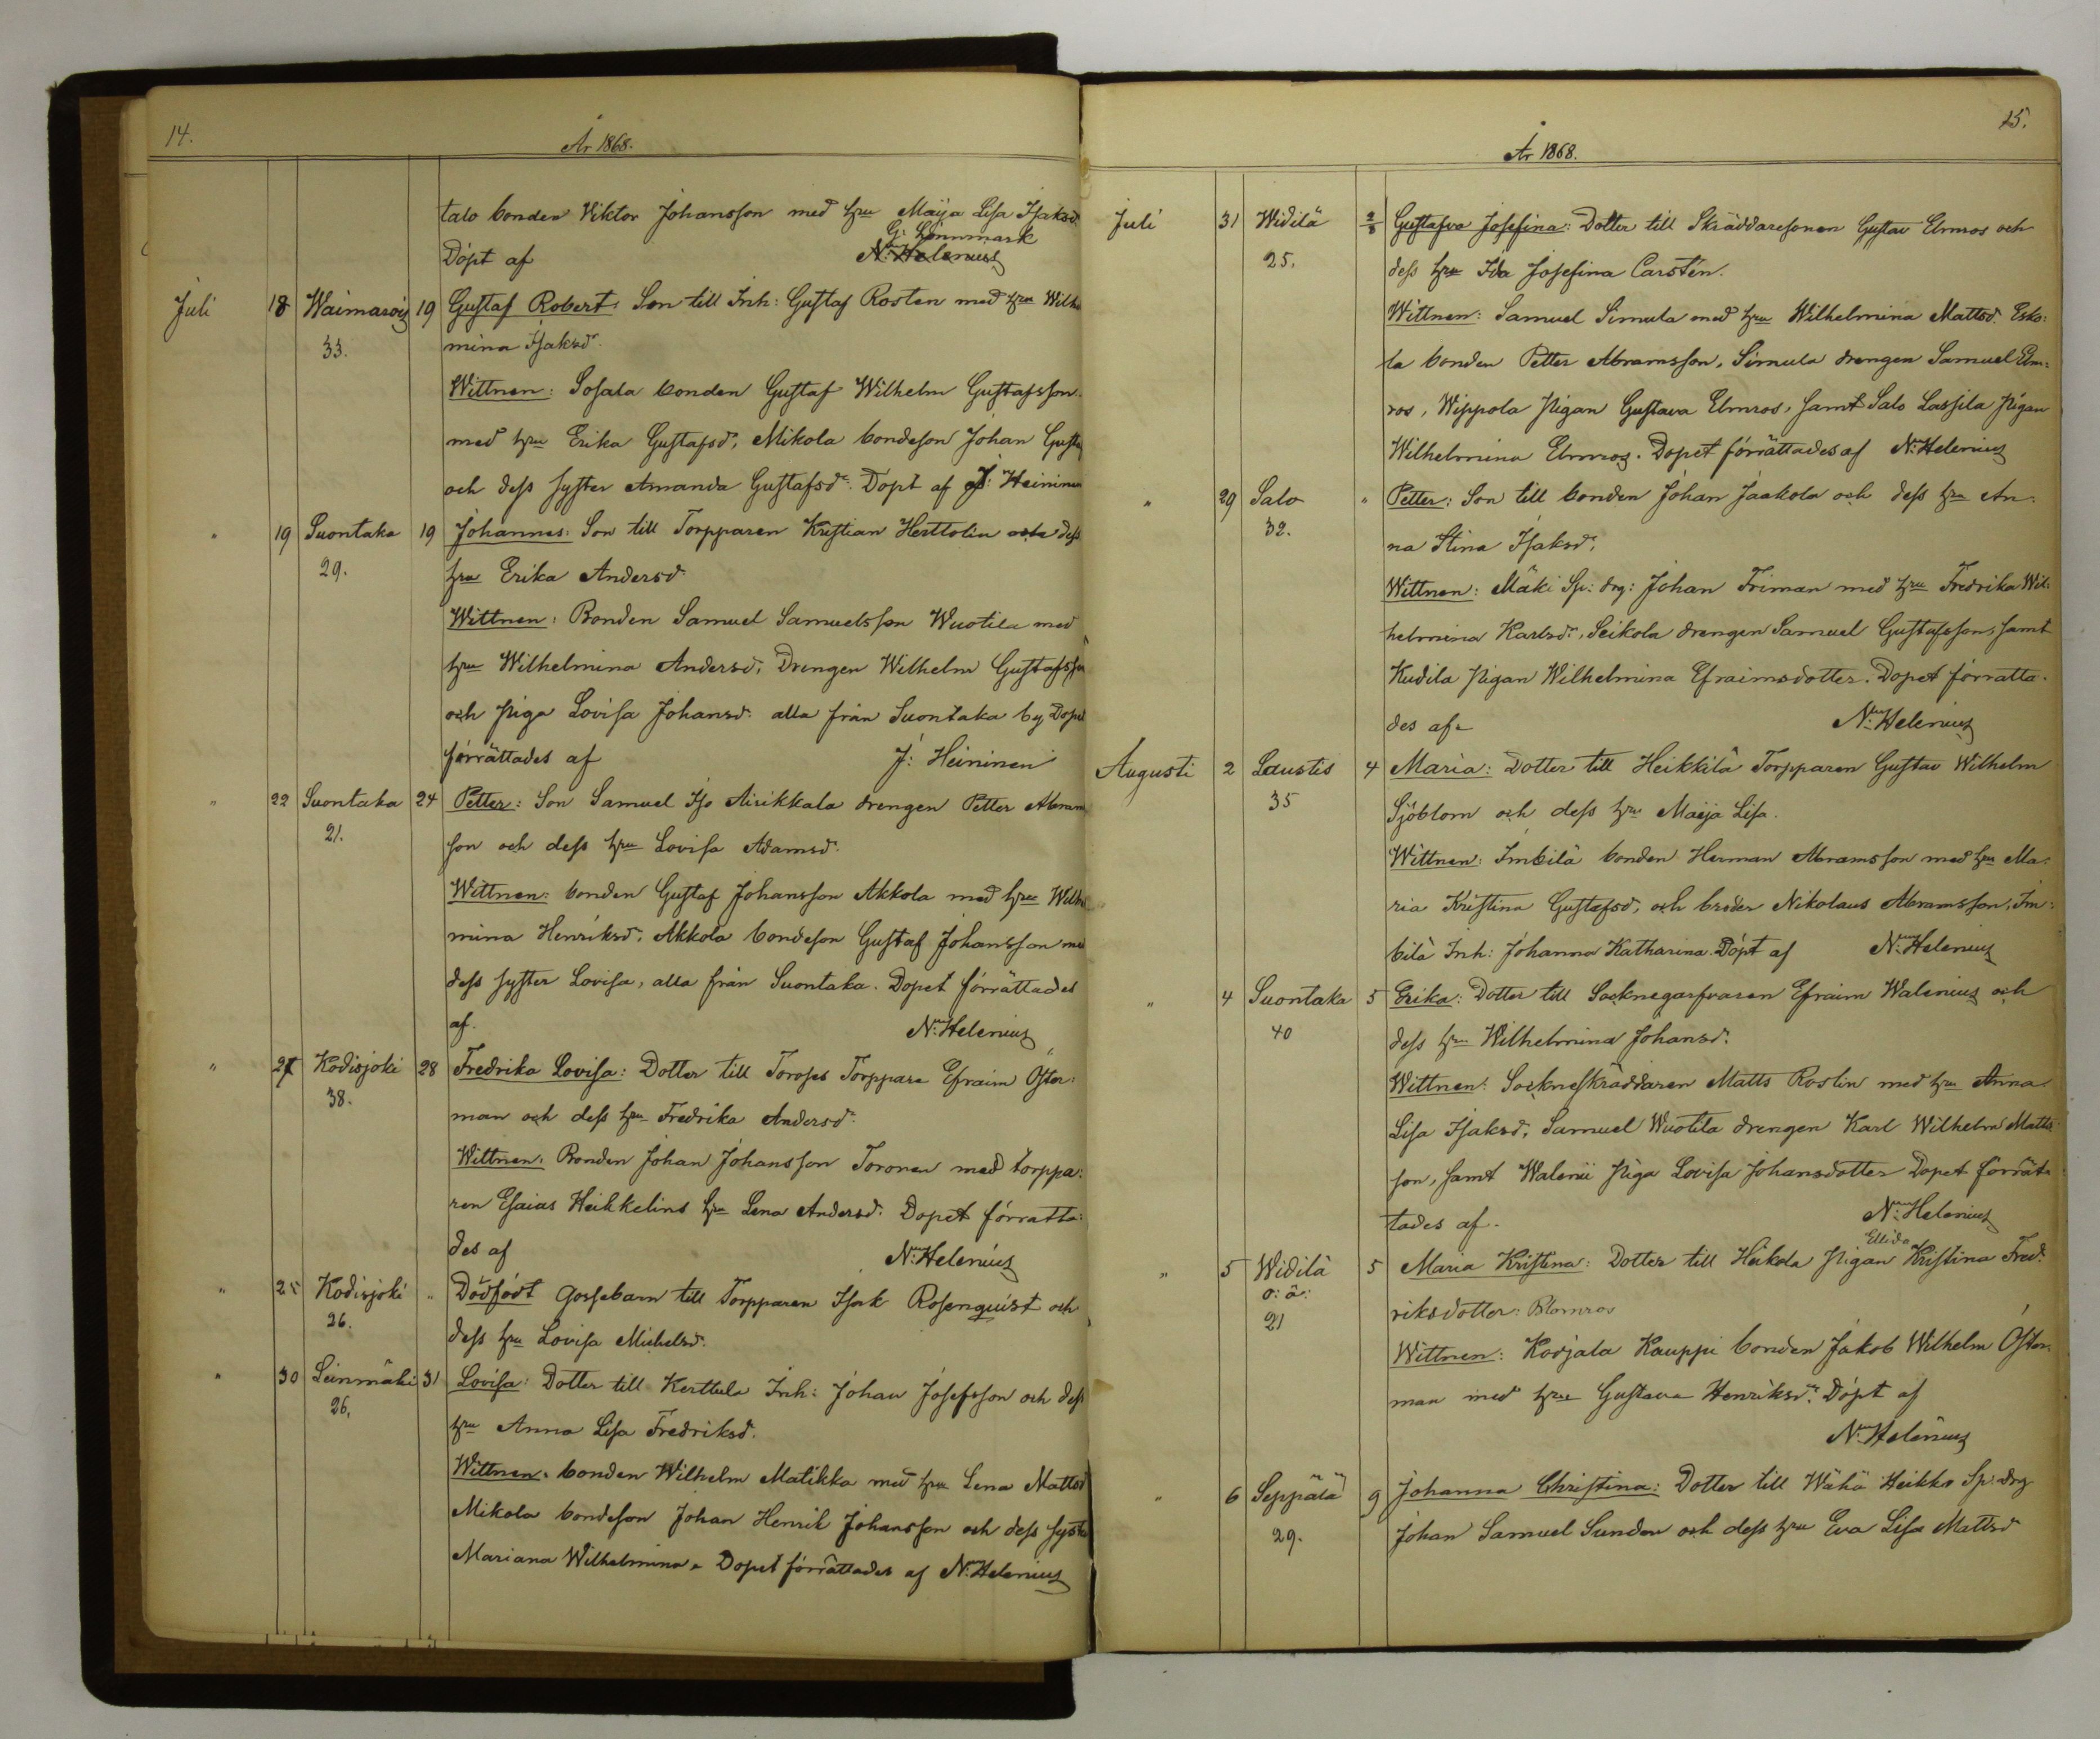 14.
År 1868.
talo bonden Viktor Johansson med hru Maija Lisa Isaksd
G: Lönnmark
Döpt af N: Helenius
Juli 18 Waimaro 19 Gustaf Robert: Son till Inh: Gustaf Rosten med hru Wilhel
33. mina Isaksdr.
Wittnen: Sofala bonden Gustaf Wilhelm Gustafsson
med hru Erika Gustafsd. Mikola bondeson Johan Gustaf
och dess syster Amanda Gustafsdr. Döpt af J: Heininen
" 19 Suontaka 19 Johannes: Son till Torpparen Kristian Herttolin och dess
29. hru Erika Andersd.
Wittnen: Bonden Samuel Samuelsson Wuotila med
hru Wilhelmina Andersd. Drengen Wilhelm Gustafsson
och Piga Lovisa Johansd. alla från Suontaka by. Dopet
förrättades af J: Heininen
" 22 Suontaka 24 Petter: Son Samuel Iso Airikkala drengen Petter Abram
21. son och dess hru Lovisa Adamsd.
Wittnen: bonden Gustaf Johansson Akkola med hru Wilhel
mina Henriksd. Akkola bondeson Gustaf Johansson med
dess syster Lovisa, alla från Suontaka. Dopet förrättades
af. N: Helenius
" 27 Kodisjoki 28 Fredrika Lovisa: Dotter till Torpparen Efraim Öster:
38. man och dess hru Fredrika Andersd.
Wittnen: Bonden Johan Johansson Toronen med torppa:
ren Esaias Heikkelins hru Lena Andersd. Dopet förratta:
des af N: Helenius
" 25 Kodisjoki " Dödfödt gossebarn till Torpparen Isak Rosenquist och
26. dess hru Lovisa Michelsd.
" 30 Leinmäki 31 Lovisa: Dotter till Kerttula Inh: Johan Josefsson och dess
26. hru Anna Lisa Fredriksd.
Wittnen: bonden Wilhelm Matikka med hru Lena Mattsd
Mikola bondeson Johan Henrik Johansson och dess syster
Mariana Wilhelmina. Dopet förrättades af N: Helenius
15.
År 1868.
Juli 31 Widilä 2/8 Gustafva Josefina: Dotter till Skräddaresonen Gustav Elmros och
25. dess hru Ida Josefina Carstén.
Wittnen: Samuel Simula med hru Wilhelmina Mattsd. Esko:
la bonden Petter Abramsson, Simula drengen Samuel Elm:
ros, Wippola Pigan Gustava Elmros, samt Salo Lassila Pigan
Wilhelmina Elmros. Dopet förrättades af N: Helenius
" 29 Salo " Petter: Son till bonden Johan Jaakola och dess hru An:
32. na Stina Isaksd.
Wittnen: Mäki Sp: drg: Johan Friman med hru Fredrika Wil:
helmina Karlsdr. Seikola drengen Samuel Gustafsson, samt
Kudila Pigan Wilhelmina Efraimsdotter. Dopet förratta.
des af N: Helenius
Augusti 2 Laustis 4 Maria: Dotter till Heikkilä Torpparen Gustav Wilhelm
35 Sjöblom och dess hru Maija Lisa.
Wittnen: Imbilä bonden Herman Abramsson med hru Ma:
ria Kristina Gustafsd. och broder Nikolaus Abramsson, Im:
bilä Inh: Johanna Katharina. Döpt af N: Helenius
" 4 Suontaka 5 Erika: Dotter till Socknegarfvaren Efraim Walenius och
40 dess hru Wilhelmina Johansd.
Wittnen: Sockneskräddaren Matts Roslin med hru Anna
Lisa Isaksd. Samuel Wuotila drengen Karl Wilhelm Matts:
son, samt Walenii Piga Lovisa Johansdotter Dopet förrät
tades af. N: Helenius
Ellida
" 5 Widilä 5 Maria Kristina: Dotter till Heikola Pigan Kristina Fred:
o: ä: riksdotter: Blomros
21
Wittnen: Kodjala Kauppi bonden Jakob Wilhelm Öster
man med hru Gustava Henriksdr. Döpt af
N: Helenius
" 6 Seppälä 9 Johanna Christina: Dotter till Wähä Heikko Sp: drg
29. Johan Samuel Sundon och dess hru Eva Lisa Mattsd